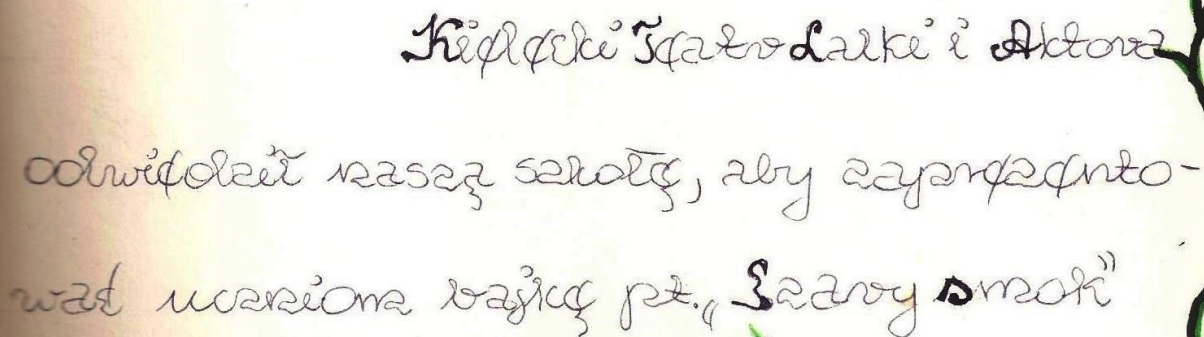 Kielecki Teatr Lalki i Aktora
odwiedził naszą szkołę, aby zaprezento-
wać uczniom bajkę pt. „Szary smok”